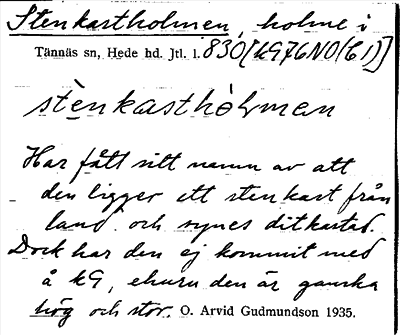 Stenkastholmen, holme i
Tännäs sn, Hede hd. Jtl. l. 830[k976NO(C1)]
stènkasthòlman
Har fått sitt namn av att
den ligger ett stenkast från
land och synes ditkastad.
Dock har den ej kommit med
å k9, ehuru den är ganska
hög och stor. O. Arvid Gudmundson 1935.